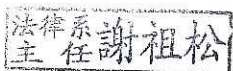 法律系
主任謝祖松